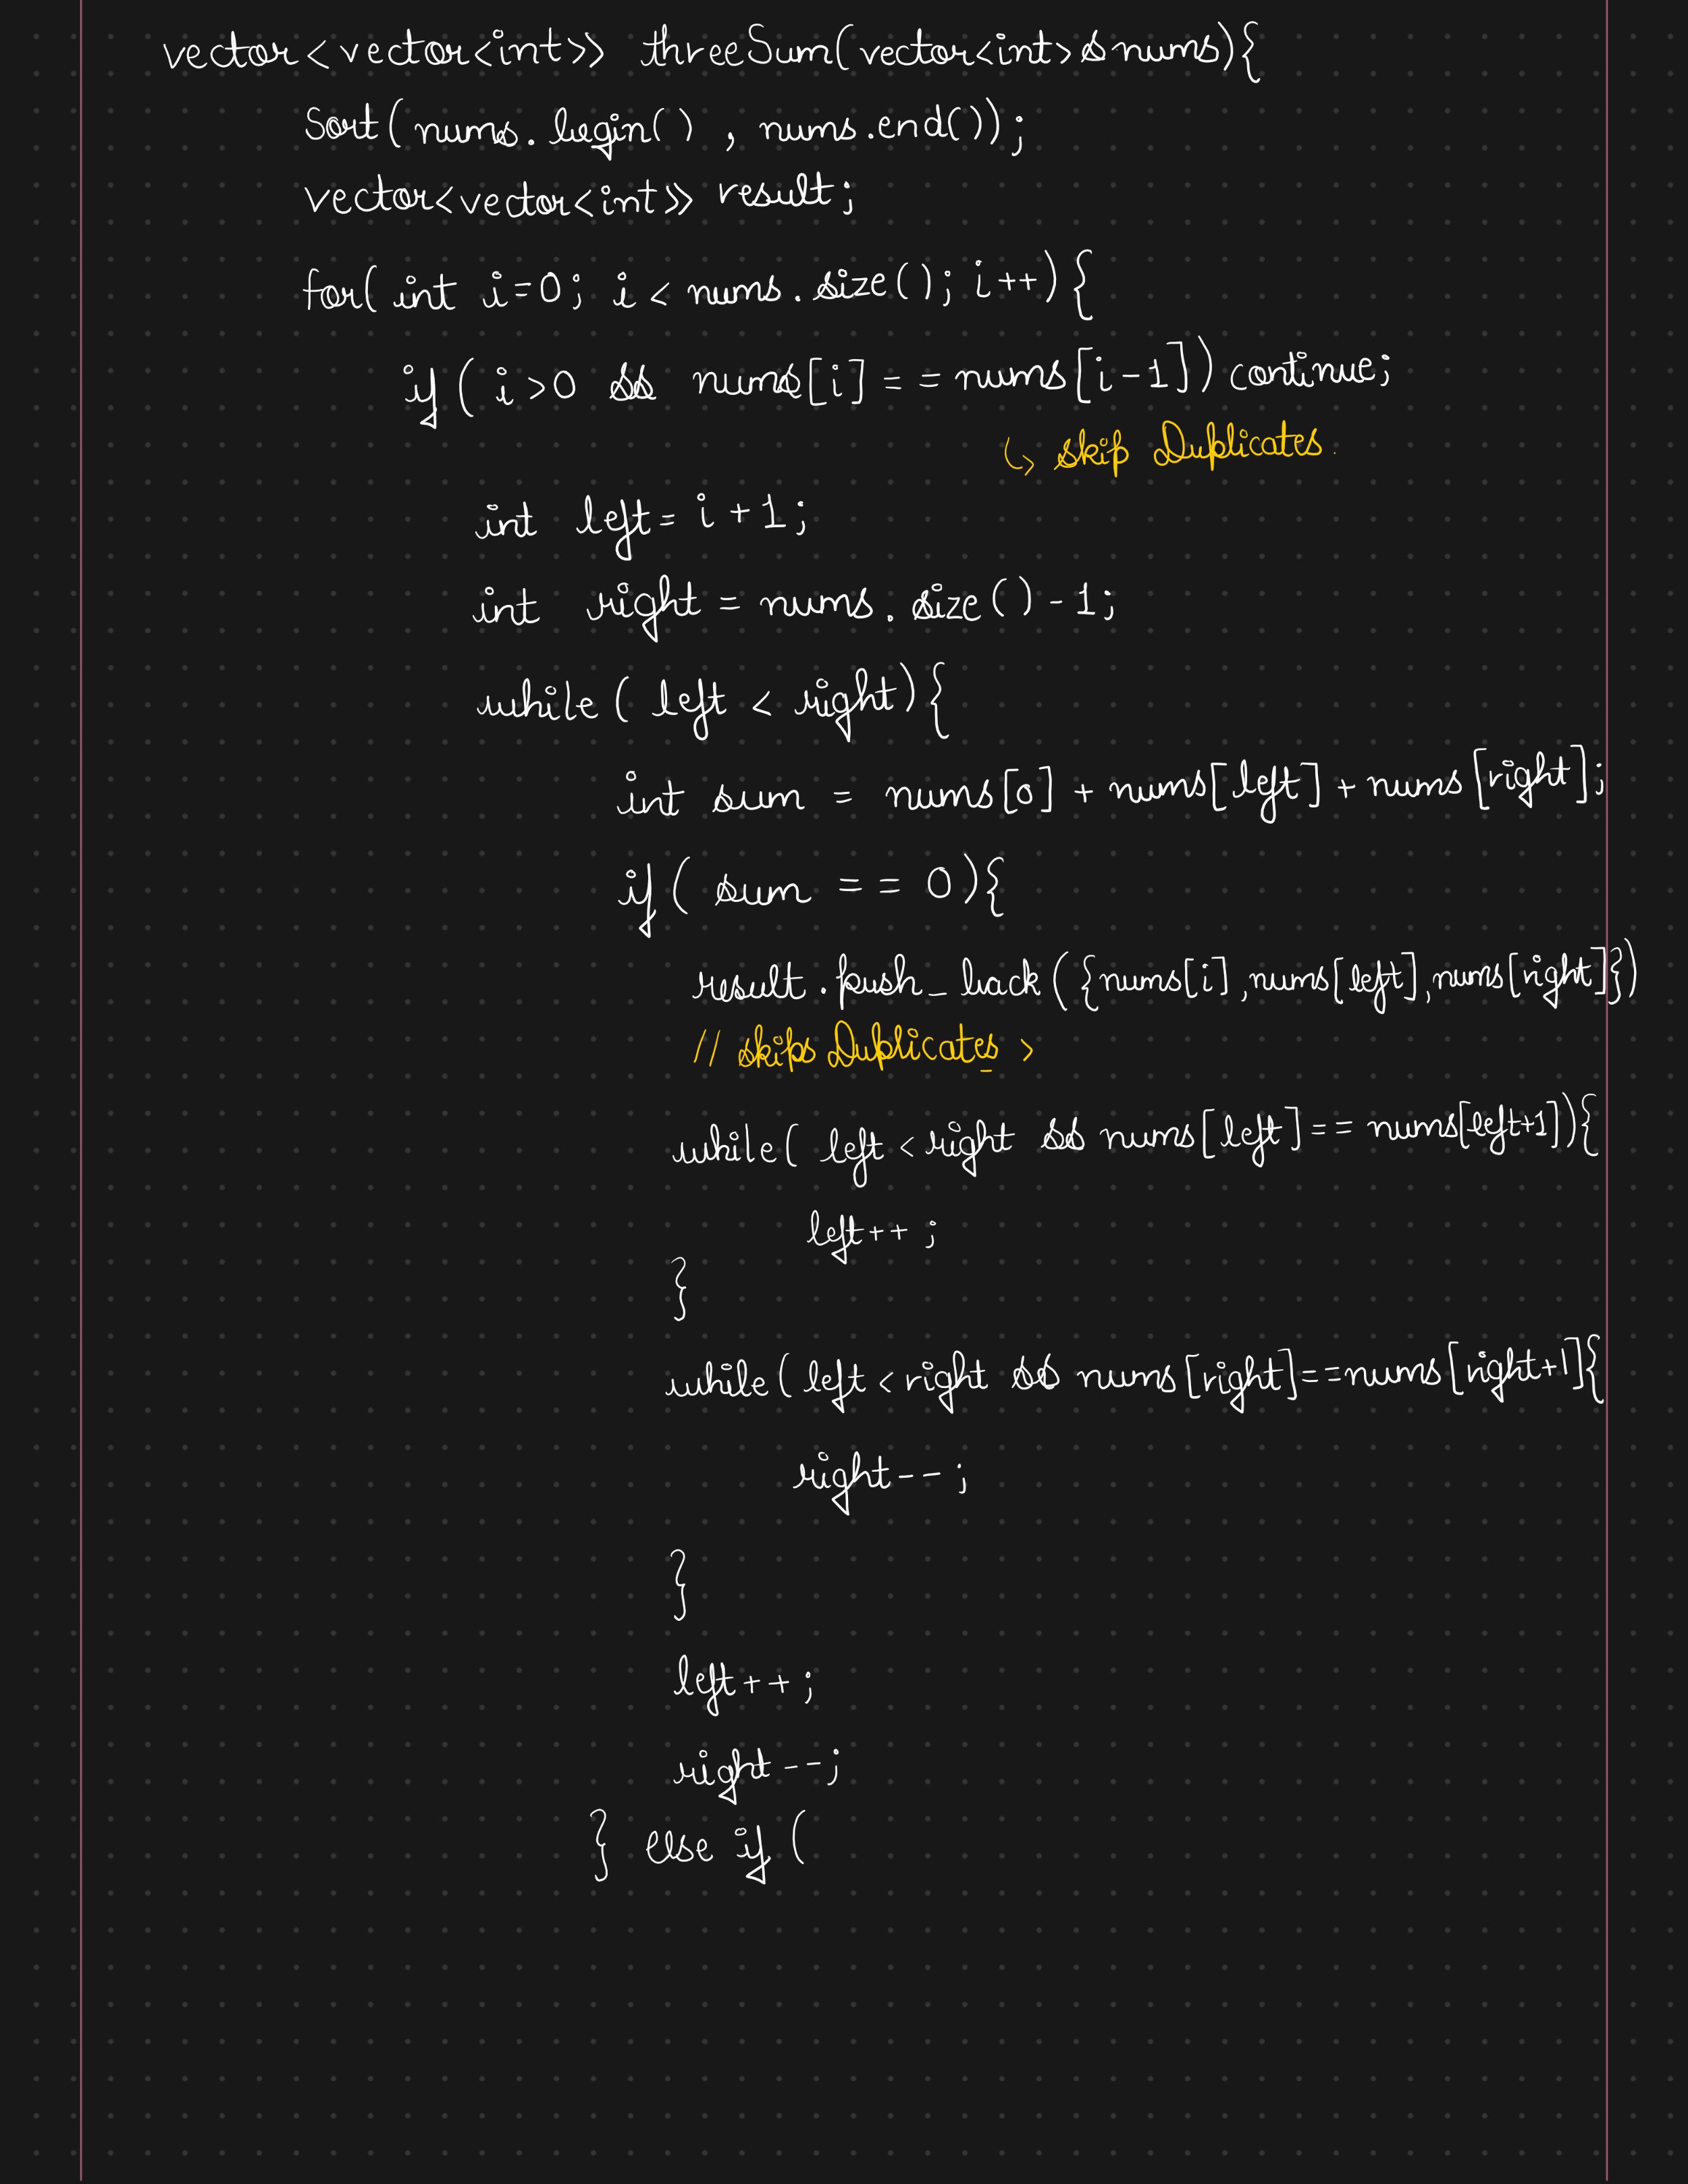 vector<vector<int>> threeSum(vector<int>&nums){
sort(nums.begin() , nums.end());
vector<vector<int>> result;
for( int i=0; i < nums.size(); i++){
if ( i>0 && nums[i] == nums[i-1]) continue;
↳ skip Duplicates.
int left = i+1;
int right = nums.size()-1;
while ( left < right){
int sum = nums[0] + nums[left] + nums[right];
if ( sum == 0){
result.push_back({nums[i],nums[left],nums[right]})
// skips Duplicates >
while( left < right && nums[left] == nums[left+1]){
left++ ;
}
while( left < right && nums[right]==nums[right+1]{
right-- ;
}
left++;
right--;
} else if (